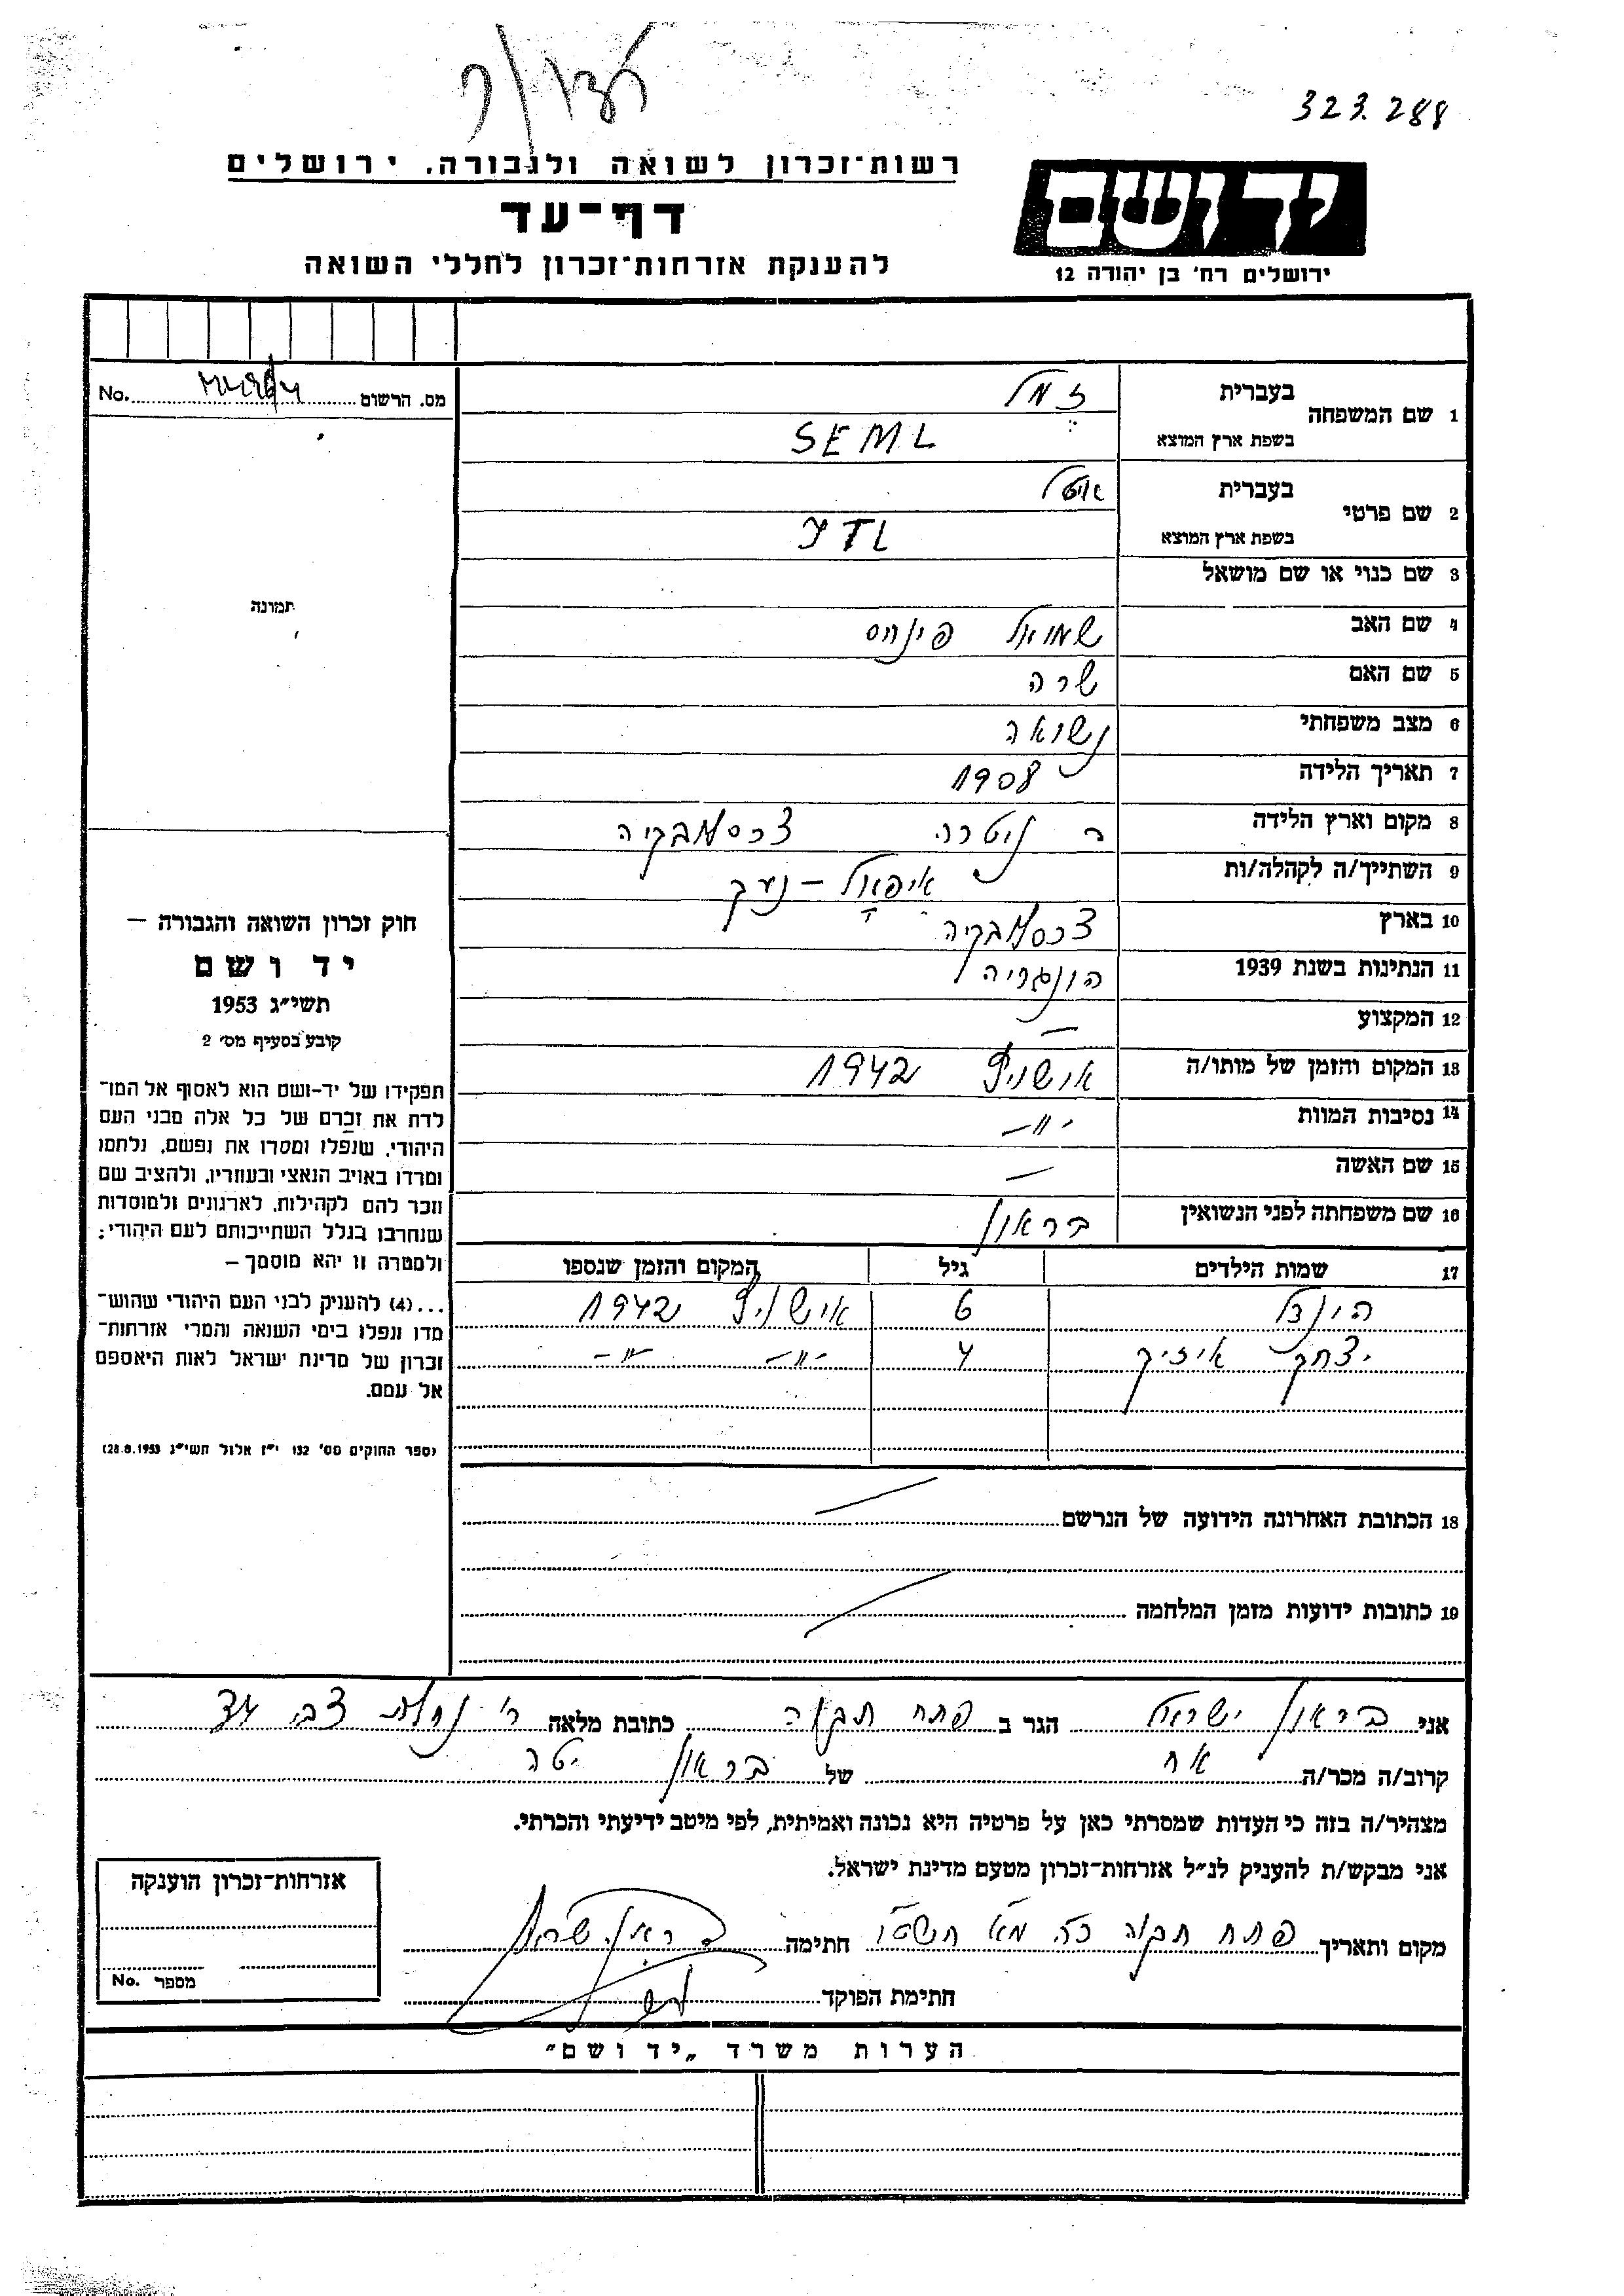 323.288
רשות־זכרון לשואה ולגבורה, ירושלים
דף־עד
להענקת אזרחות־זכרון לחללי השואה
יד ושם
ירושלים רח׳ בן יהודה 12
מס. הרשום No.
1 שם המשפחה בעברית זמל
בשפת ארץ המוצא SEML
2 שם פרטי בעברית איטל
בשפת ארץ המוצא YTL
3 שם כנוי או שם מושאל
4 שם האב שמואל פינחס
5 שם האם שרה
6 מצב משפחתי נשואה
7 תאריך הלידה 1908
8 מקום וארץ הלידה ניטרה צכסלובקיה
9 השתייך/ה לקהלה/ות
10 בארץ צכסלובקיה
11 הנתינות בשנת 1939 הונגריה
12 המקצוע —
13 המקום והזמן של מותו/ה אושויץ 1942
14 נסיבות המוות -"-
15 שם האשה —
16 שם משפחתה לפני הנשואין בראון
17 שמות הילדים גיל המקום והזמן שנספו
הינדל 6 אושויץ 1942
יצחק אייזיק 4 -"- -"-
18 הכתובת האחרונה הידועה של הנרשם
19 כתובות ידועות מזמן המלחמה
תמונה
חוק זכרון השואה והגבורה —
יד ושם
תשי״ג 1953
קובע בסעיף מס׳ 2
תפקידו של יד-ושם הוא לאסוף אל המו־
לדת את זכרם של כל אלה מבני העם
היהודי, שנפלו ומסרו את נפשם, נלחמו
ומרדו באויב הנאצי ובעוזריו, ולהציב שם
וזכר להם לקהילות, לארגונים ולמוסדות
שנחרבו בגלל השתייכותם לעם היהודי;
ולמטרה זו יהא מוסמך —
...(4) להעניק לבני העם היהודי שהוש־
מדו ונפלו בימי השואה והמרי אזרחות־
זכרון של מדינת ישראל לאות היאספם
אל עמם.
(ספר החוקים מס׳ 132 י״ז אלול תשי״ג 28.8.1953)
אני בראון ישראל הגר ב פתח תקוה כתובת מלאה ר׳ נחלת צבי
קרוב/ה מכר/ה אח של בראון
מצהיר/ה בזה כי העדות שמסרתי כאן על פרטיה היא נכונה ואמיתית, לפי מיטב ידיעתי והכרתי.
אני מבקש/ת להעניק לנ״ל אזרחות־זכרון מטעם מדינת ישראל.
מקום ותאריך פתח תקוה חתימה בראון ישראל
חתימת הפוקד
אזרחות־זכרון הוענקה
מספר No.
הערות משרד „יד ושם״